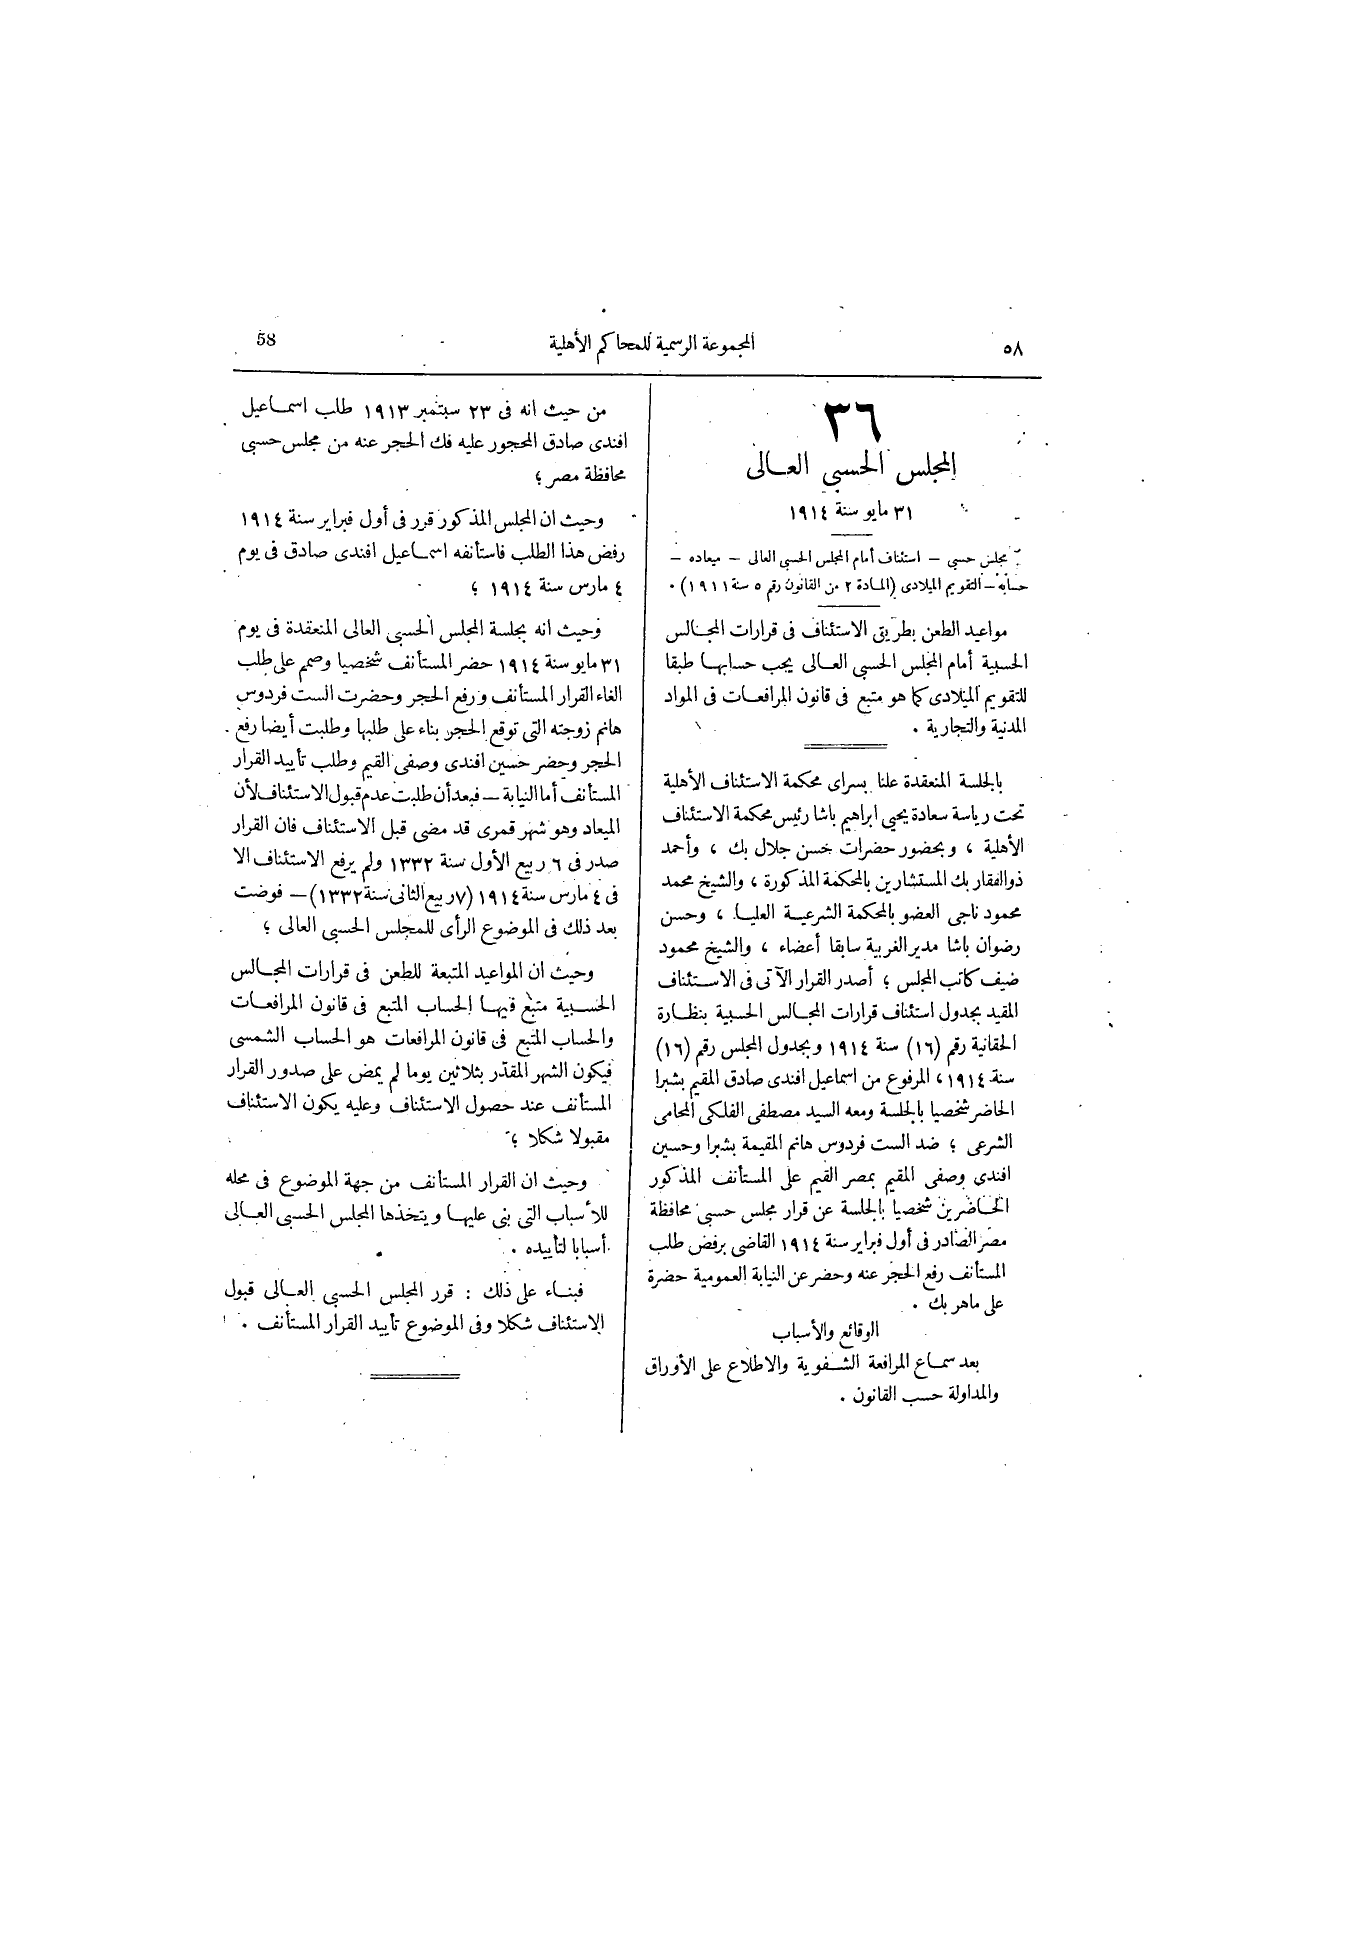 ٥٨
المجموعة الرسمية للمحاكم الأهلية
58
٣٦
المجلس الحسبي العالى
٣١ مايو سنة ١٩١٤
مجلس حسبي – استئناف أمام المجلس الحسبي العالى – ميعاده –
حسابه – التقويم الميلادى (المادة ٢ من القانون رقم ٥ سنة ١٩١١) .
مواعيد الطعن بطريق الاستئناف فى قرارات المجالس
الحسبية أمام المجلس الحسبي العالى يجب حسابها طبقا
للتقويم الميلادى كما هو متبع فى قانون المرافعات فى المواد
المدنية والتجارية .
بالجلسة المنعقدة علنا بسراى محكمة الاستئناف الأهلية
تحت رياسة سعادة يحيى ابراهيم باشا رئيس محكمة الاستئناف
الأهلية ، وبحضور حضرات حسن جلال بك ، وأحمد
ذو الفقار بك المستشارين بالمحكمة المذكورة ، والشيخ محمد
محمود ناجى العضو بالمحكمة الشرعية العليا ، وحسن
رضوان باشا مدير الغربية سابقا أعضاء ، والشيخ محمود
ضيف كاتب المجلس ؛ أصدر القرار الآتى فى الاستئناف
المقيد بجدول استئناف قرارات المجالس الحسبية بنظارة
الحقانية رقم (١٦) سنة ١٩١٤ وبجدول المجلس رقم (١٦)
سنة ١٩١٤ ، المرفوع من اسماعيل افندى صادق المقيم بشبرا
الحاضر شخصيا بالجلسة ومعه السيد مصطفى الفلكى المحامى
الشرعى ؛ ضد الست فردوس هانم المقيمة بشبرا وحسين
افندى وصفى المقيم بمصر القيم على المستأنف المذكور
الحاضرين شخصيا بالجلسة عن قرار مجلس حسبي محافظة
مصر الصادر فى أول فبراير سنة ١٩١٤ القاضى برفض طلب
المستأنف رفع الحجر عنه وحضر عن النيابة العمومية حضرة
على ماهر بك .
الوقائع والأسباب
بعد سماع المرافعة الشفوية والاطلاع على الأوراق
والمداولة حسب القانون .
من حيث انه فى ٢٣ سبتمبر ١٩١٣ طلب اسماعيل
افندى صادق المحجور عليه فك الحجر عنه من مجلس حسبى
محافظة مصر ؛
وحيث ان المجلس المذكور قرر فى أول فبراير سنة ١٩١٤
رفض هذا الطلب فاستأنفه اسماعيل افندى صادق فى يوم
٤ مارس سنة ١٩١٤ ؛
وحيث انه بجلسة المجلس الحسبي العالى المنعقدة فى يوم
٣١ مايو سنة ١٩١٤ حضر المستأنف شخصيا وصمم على طلب
الغاء القرار المستأنف ورفع الحجر وحضرت الست فردوس
هانم زوجته التى توقع الحجر بناء على طلبها وطلبت أيضا رفع
الحجر وحضر حسين افندى وصفى القيم وطلب تأييد القرار
المستأنف أما النيابة – فبعد أن طلبت عدم قبول الاستئناف لأن
الميعاد وهو شهر قمرى قد مضى قبل الاستئناف فان القرار
صدر فى ٦ ربيع الأول سنة ١٣٣٢ ولم يرفع الاستئناف الا
فى ٤ مارس سنة ١٩١٤ (٧ ربيع الثانى سنة ١٣٣٢) – فوضت
بعد ذلك فى الموضوع الرأى للمجلس الحسبي العالى ؛
وحيث ان المواعيد المتبعة للطعن فى قرارات المجالس
الحسبية متبع فيها الحساب المتبع فى قانون المرافعات
والحساب المتبع فى قانون المرافعات هو الحساب الشمسى
فيكون الشهر المقدّر بثلاثين يوما لم يمض على صدور القرار
المستأنف عند حصول الاستئناف وعليه يكون الاستئناف
مقبولا شكلا ؛
وحيث ان القرار المستأنف من جهة الموضوع فى محله
للأسباب التى بنى عليها ويتخذها المجلس الحسبي العالى
أسبابا لتأييده .
فبناء على ذلك : قرر المجلس الحسبي العالى قبول
الاستئناف شكلا وفى الموضوع تأييد القرار المستأنف .